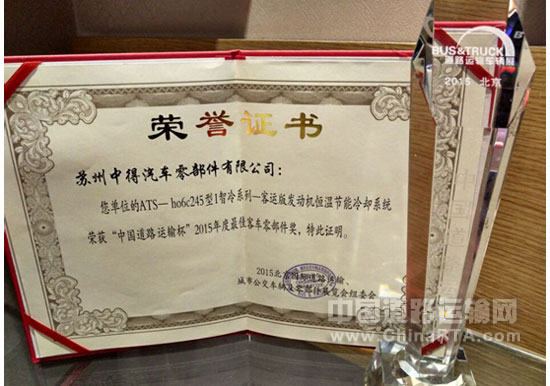 荣誉证书
苏州中得汽车零部件有限公司：
您单位的ATS—ho6c245型I智冷系列—客运版发动机恒温节能冷却系统
荣获“中国道路运输杯”2015年度最佳客车零部件奖，特此证明。
2015北京国际道路运输、
城市公交车辆及零部件展览会组委会
BUS&TRUCK
道路运输车辆展
2015 北京
中国道路运输网
www.ChinaRTA.com